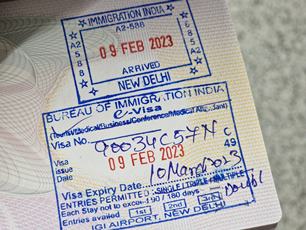 IMMIGRATION INDIA
A2-588
09 FEB 2023
ARRIVED
NEW DELHI
A2588
A2588
BUREAU OF IMMIGRATION, INDIA
e-Visa
(Tourist/Medical/Business/Conference/Medical Attendant)
Visa No.
Visa Issue Date
09 FEB 2023
C
49
Visa Expiry Date
ENTRIES PERMITTED: SINGLE / TRIPLE / MULTIPLE
Each Stay not to exceed 90 / 180 days
Entries availed 1st 2nd 3rd
IGI AIRPORT, NEW DELHI